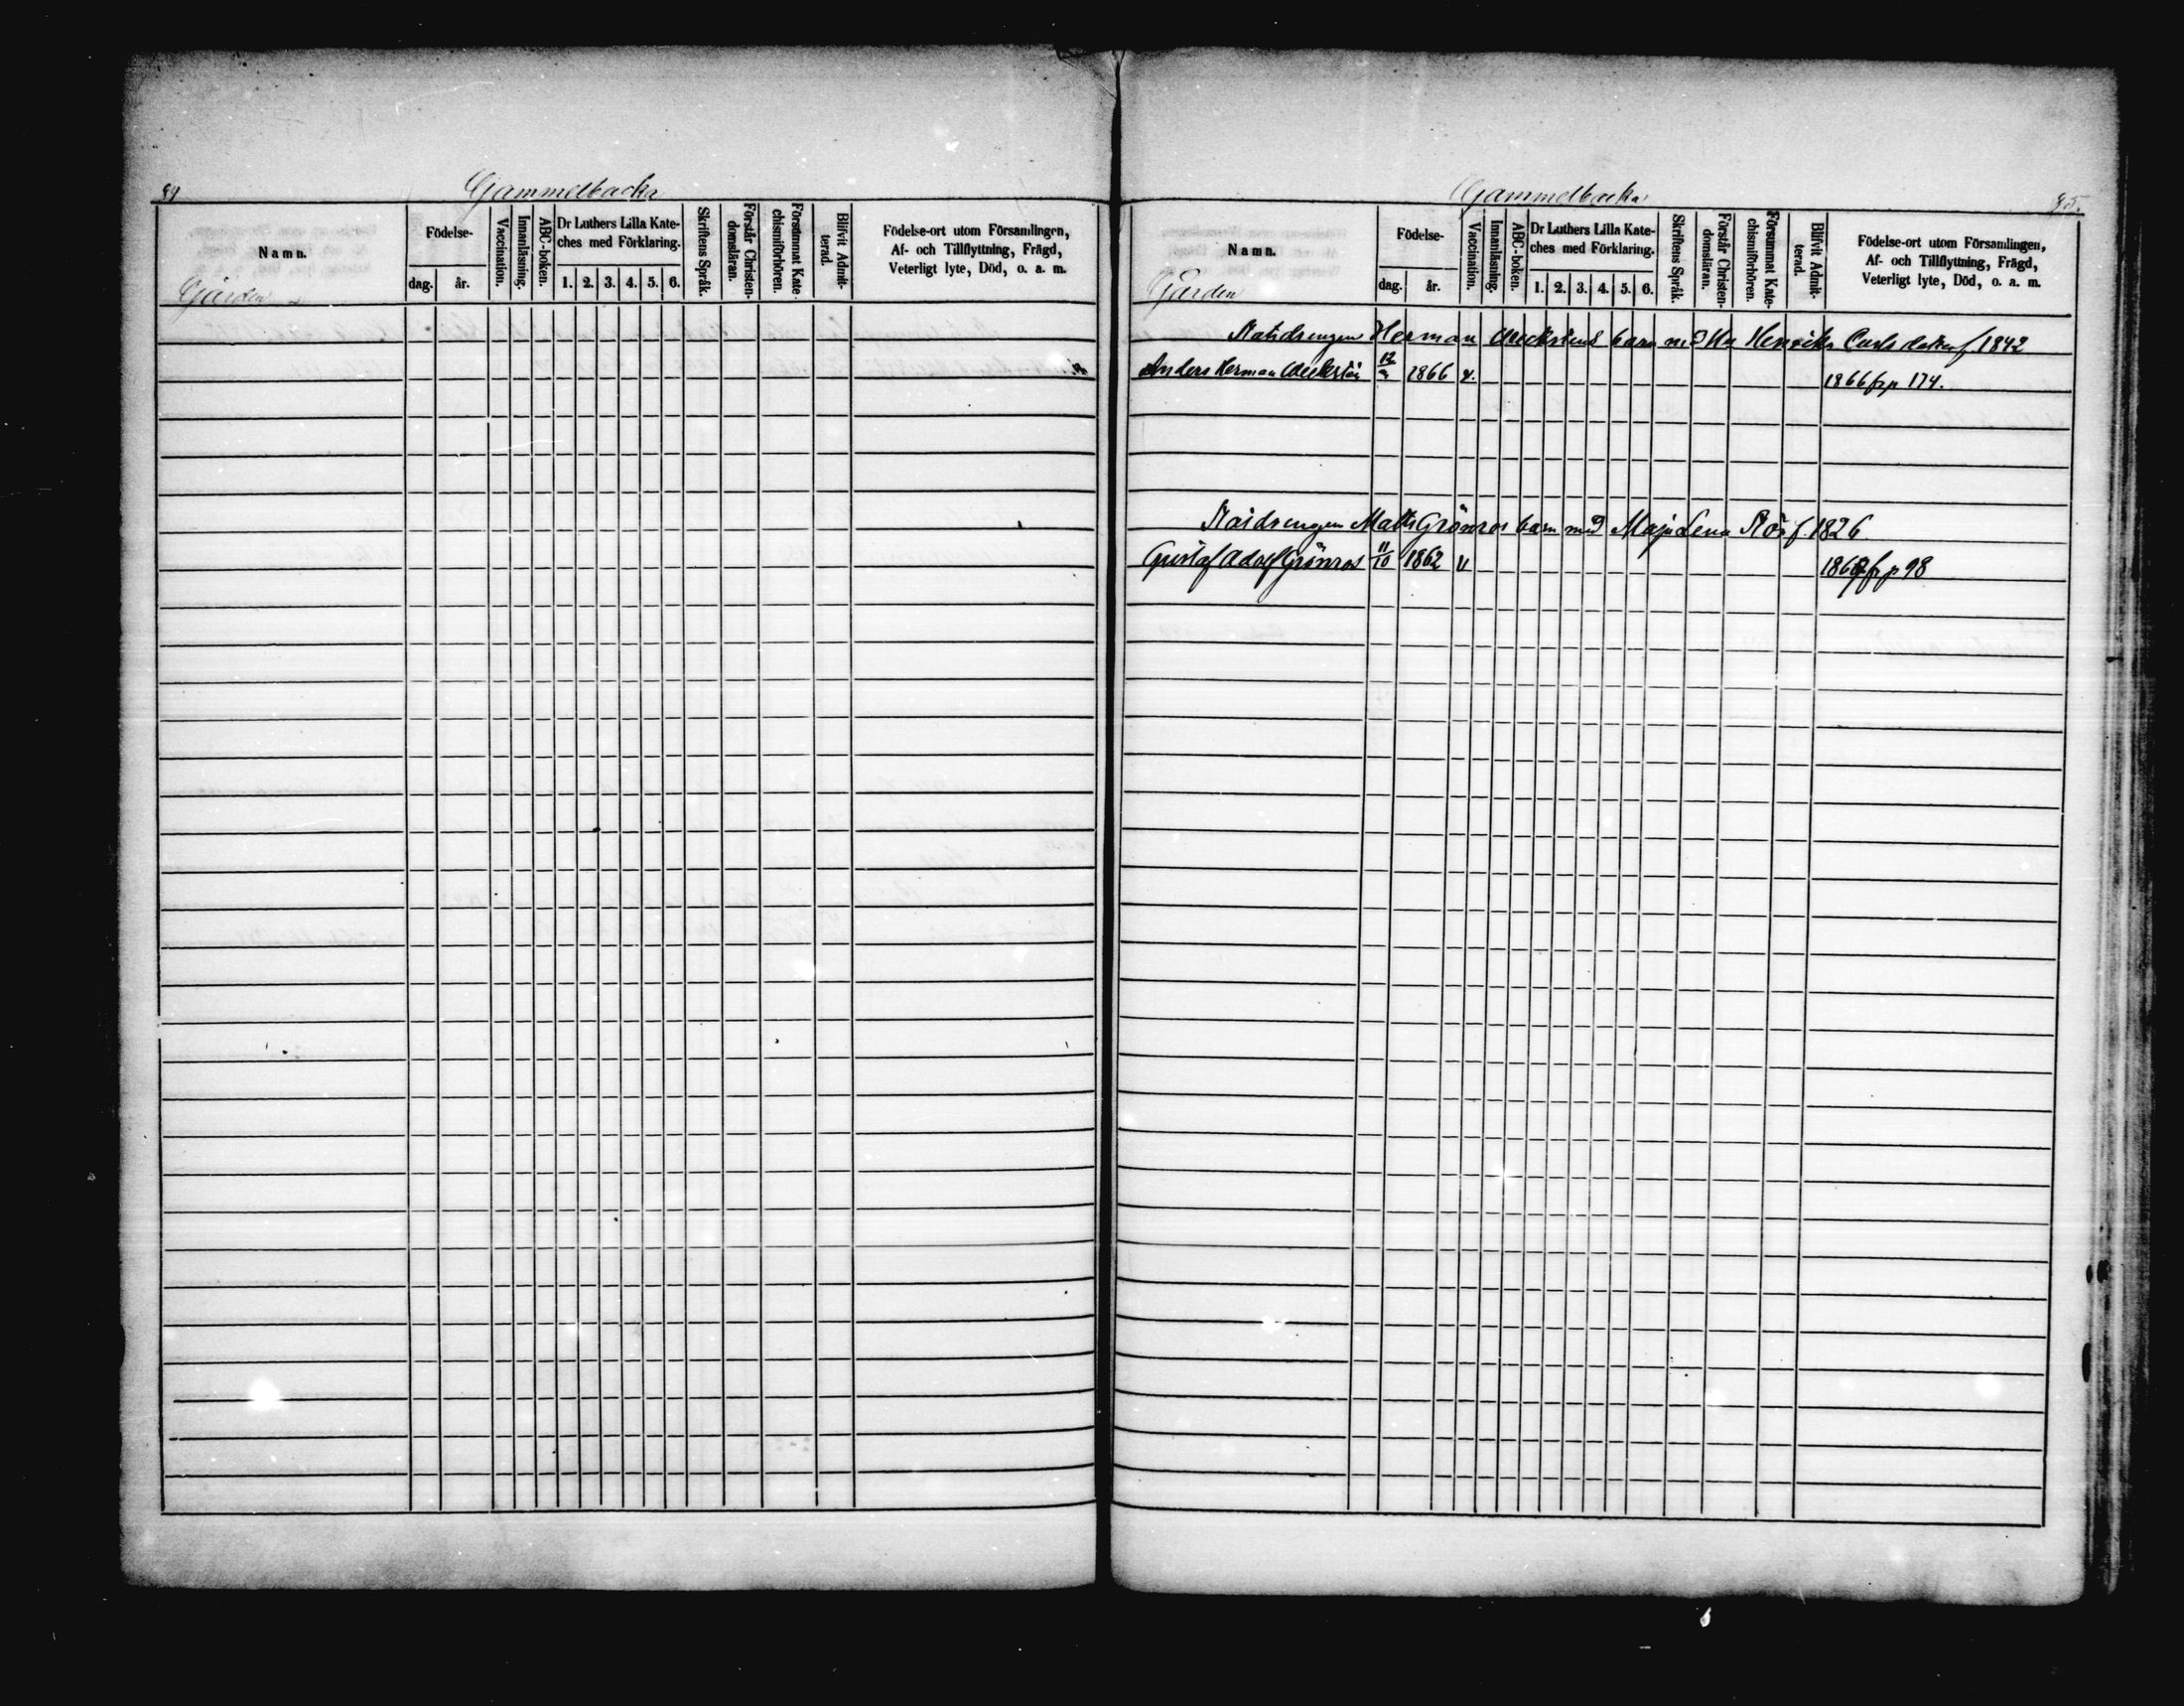 84
Gammelbacka
Namn.
Gården
Födelse-
dag. år.
Vaccination.
Innanläsning.
ABC-boken.
Dr Luthers Lilla Kate-
ches med Förklaring.
1. 2. 3. 4. 5. 6.
Skriftens Språk.
Förstår Christen-
domsläran.
Försummat Kate-
chismiförhören.
Blifvit Admit-
terad.
Födelse-ort utom Församlingen,
Af- och Tillflyttning, Frägd,
Veterligt lyte, Död, o. a. m.
Gammelbacka
85.
Namn.
Gården
Födelse-
dag. år.
Vaccination.
Innanläsning.
ABC-boken.
Dr Luthers Lilla Kate-
ches med Förklaring.
1. 2. 3. 4. 5. 6.
Skriftens Språk.
Förstår Christen-
domsläran.
Försummat Kate-
chismiförhören.
Blifvit Admit-
terad.
Födelse-ort utom Församlingen,
Af- och Tillflyttning, Frägd,
Veterligt lyte, Död, o. a. m.
Statdrengen Herman barn med Hu Henrika Carlsdotter f. 1842
Anders Herman 1866 v. 1866 fr p 174.
Statdrengen Matts Grönros barn med Maja Lena f. 1826
Gustaf Adolf Grönros 11/10 1862 v fr p 98